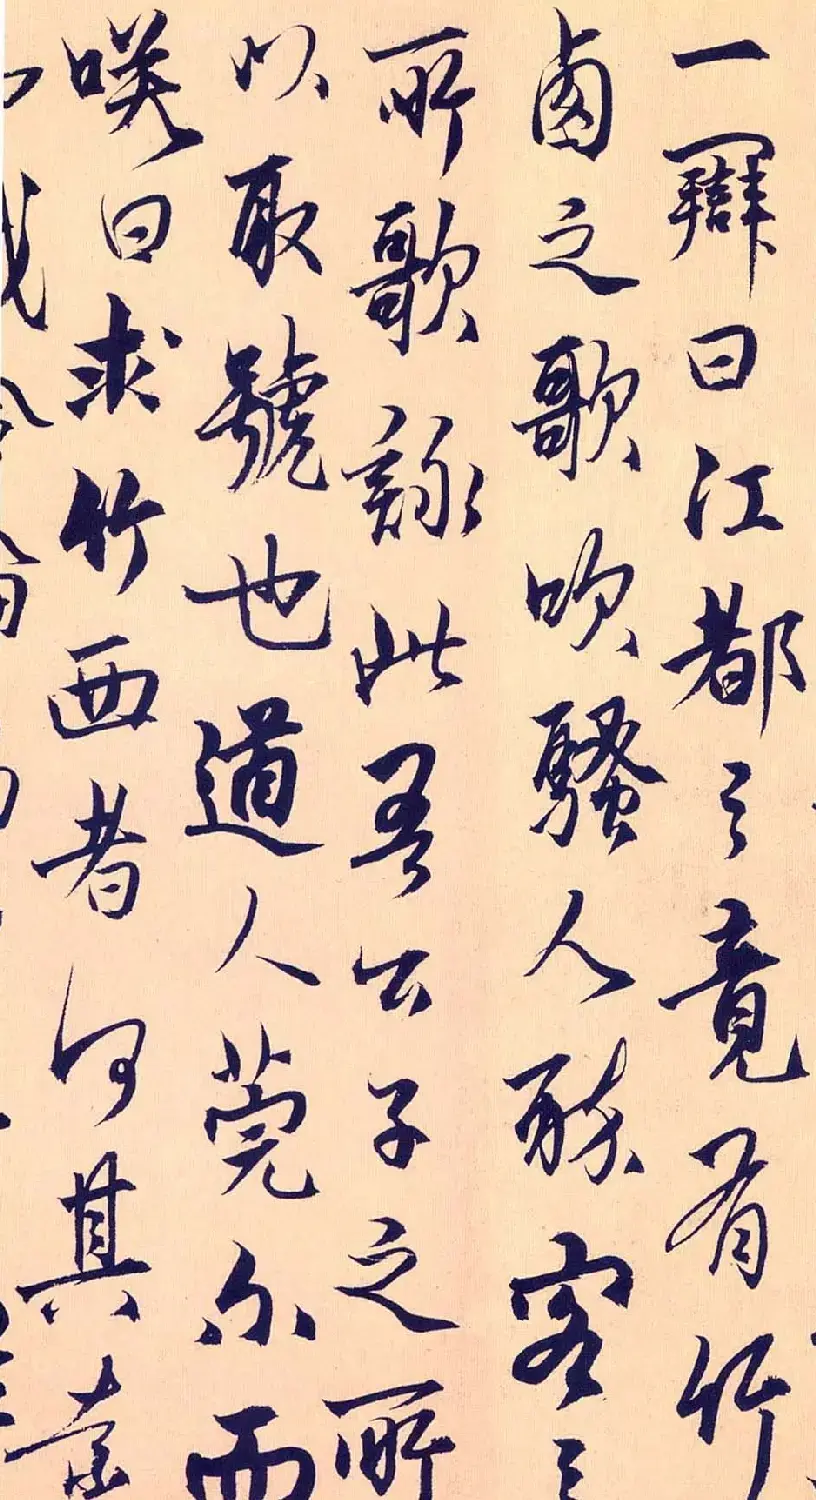 一辯曰江都之竟有竹
卤之歌吹騷人醉客之
所歌詠此吾公子之所
以取號也道人莞尔而
咲曰求竹西者何其